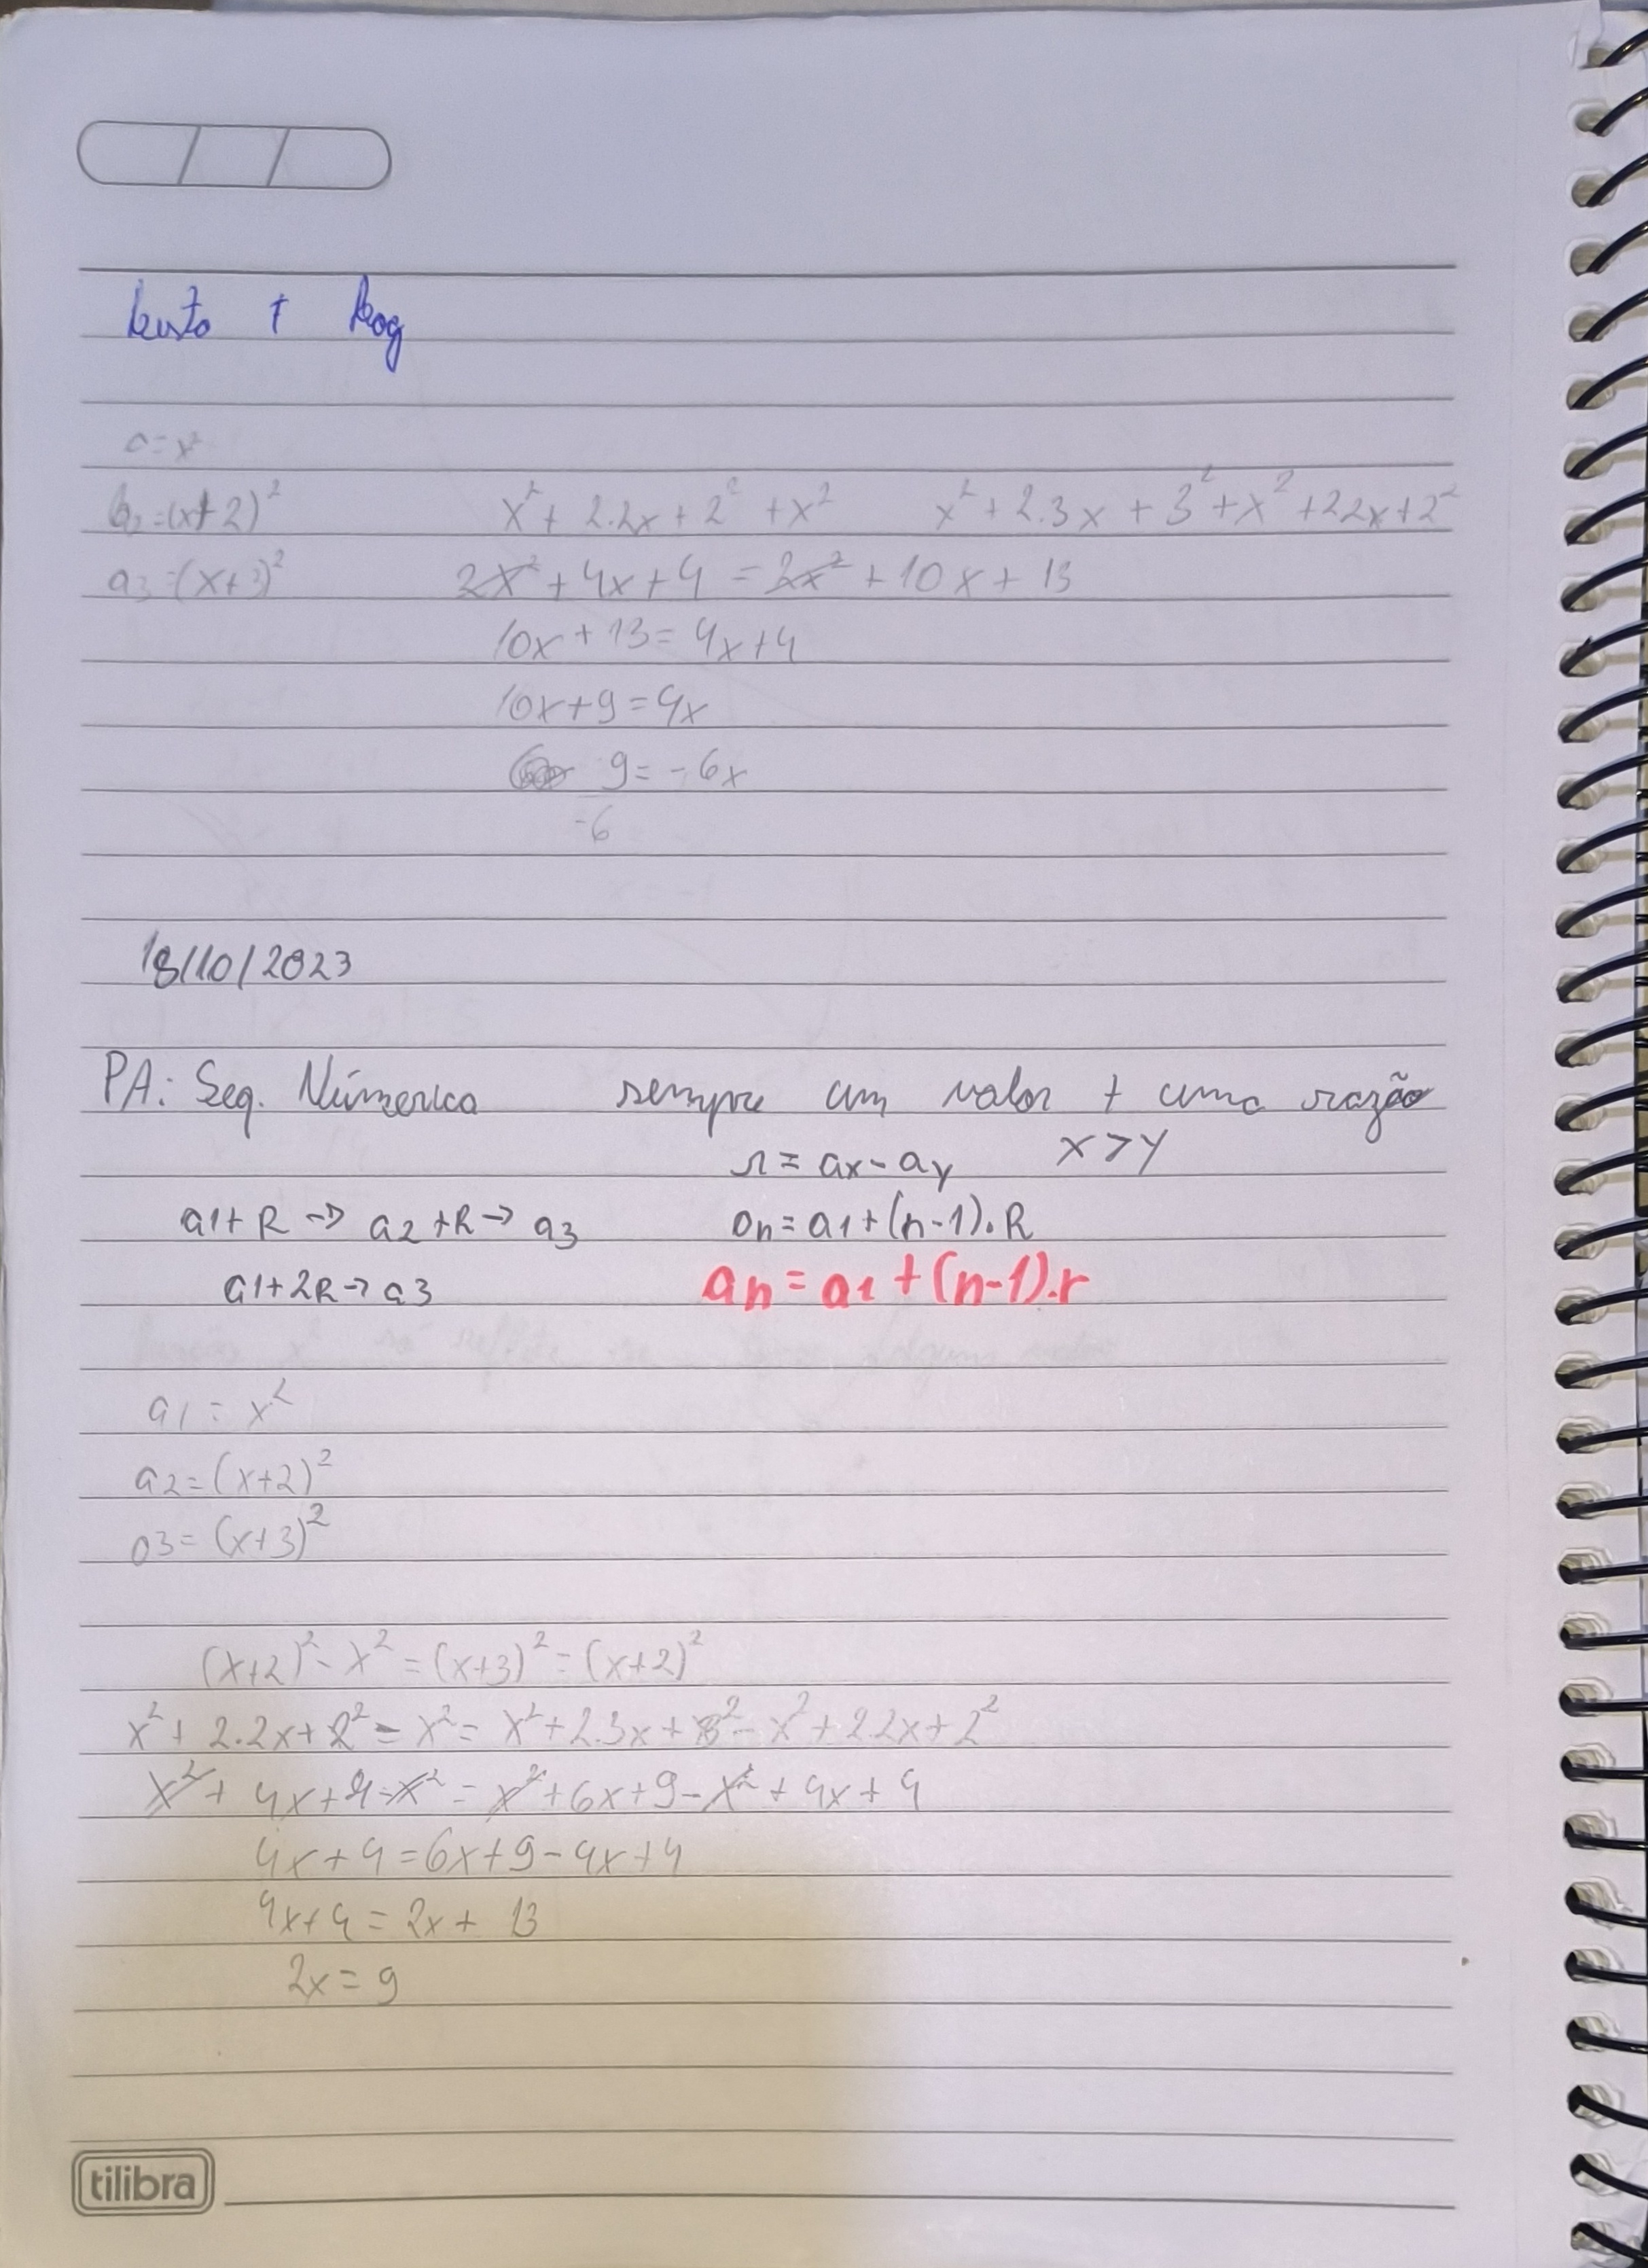 a=x²
a2=(x+2)² x²+2.2x+2²+x² x²+2.3x+3²+x²+22x+2²
a3=(x+3)² 2x²+4x+4=2x²+10x+13
10x+13=4x+4
10x+9=4x
9=-6x
-6
18/10/2023
PA: Seq. Númerica sempre um valor + uma razão
r=ax-ay x>y
a1+R→a2+R→a3 an=a1+(n-1).R
a1+2R→a3 an=a1+(n-1).r
a1=x²
a2=(x+2)²
a3=(x+3)²
(x+2)²-x²=(x+3)²=(x+2)²
x²+2.2x+2²-x²=x²+2.3x+3²-x²+22x+2²
x²+4x+4-x²=x²+6x+9-x²+4x+4
4x+4=6x+9-4x+4
4x+4=2x+13
2x=9
tilibra